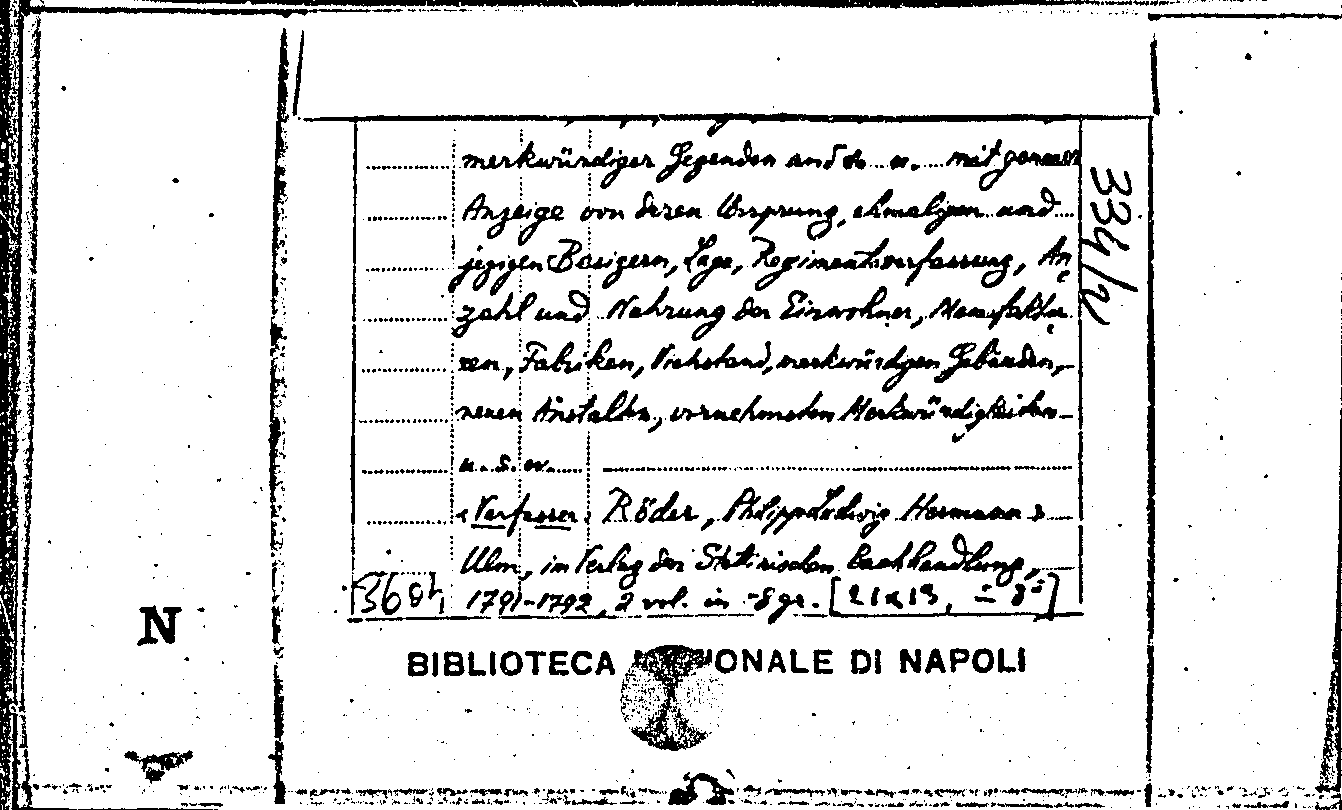 merkwürdiger Gegenden und u. mit genauer
Anzeige von deren Ursprung, ehmaligen und
jezigen Besizern, Lage, Regimentsverfassung, An
zahl und Nahrung der Einwohner, Manufaktu
ren, Fabriken, Viehstand, merkwürdigen Gebäuden,
neuen Anstalten, vornehmsten Merkwürdigkeiten
u.s.w.
<Verfasser: Röder, Philipp Ludwig Hermann>
Ulm, im Verlag der Stettinischen Buchhandlung,
1791-1792, 2 vol. in -8 gr. [21x13, = 8°]
334/2
BIBLIOTECA NAZIONALE DI NAPOLI
N